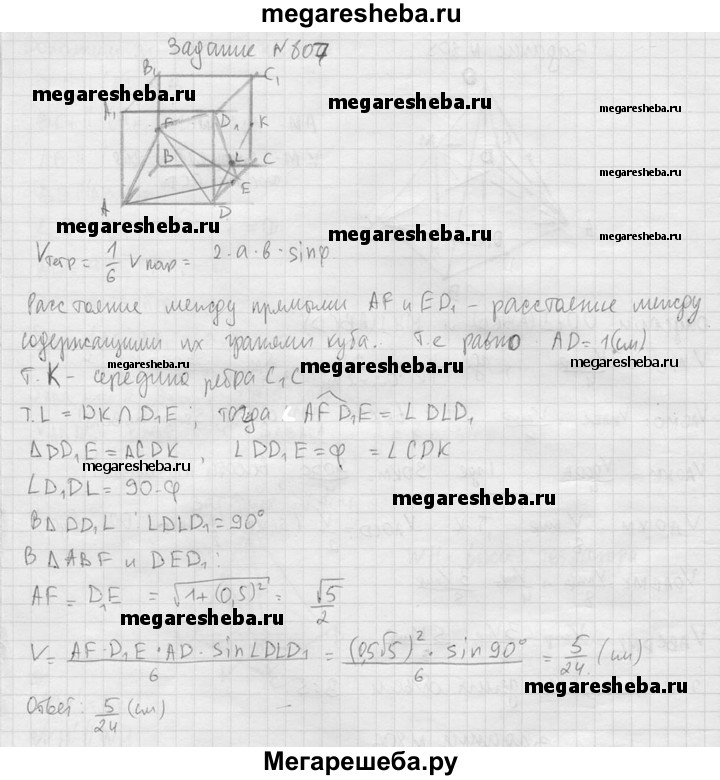 megaresheba.ru
Задание №807
B₁ C₁
megaresheba.ru megaresheba.ru megaresheba.ru
A₁ F D₁ K
B L C megaresheba.ru
E
A D megaresheba.ru
megaresheba.ru megaresheba.ru
Vтетр = 1/6 Vпар = 2·a·b·sinφ
Расстояние между прямыми AF и ED₁ – расстояние между
содержащими их гранями куба. Т.е равно AD = 1(см)
megaresheba.ru megaresheba.ru megaresheba.ru
Т. K – середина ребра C₁C
Т.L = DK ∩ D₁E ; тогда AF D₁E = ∠DLD₁
ΔDD₁E = ΔCDK , ∠DD₁E = φ = ∠CDK
megaresheba.ru
∠D₁DL = 90-φ
megaresheba.ru
В ΔDD₁L ∠DLD₁ = 90°
В ΔABF и DED₁ :
AF = D₁E = √1+(0,5)² = √5/2
megaresheba.ru megaresheba.ru
V = AF·D₁E·AD·sin∠DLD₁/6 = (0,5√5)²·sin90°/6 = 5/24 (см)
megaresheba.ru
Ответ: 5/24 (см)
Мегарешеба.ру